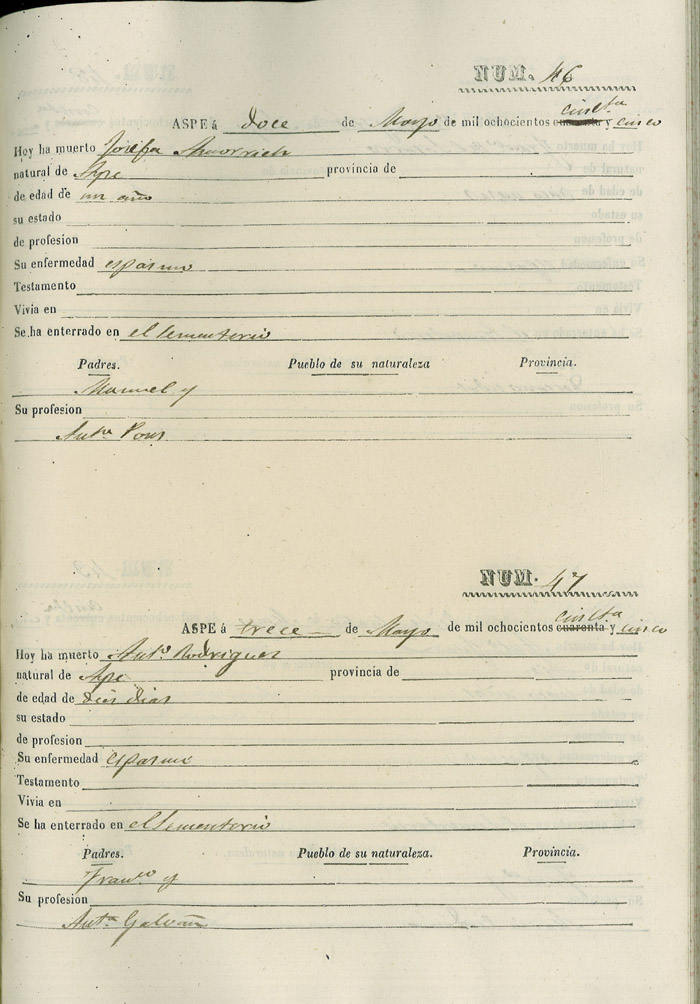 NUM. 46
ASPE á doce de Mayo de mil ochocientos cuarenta cincta y cinco
Hoy ha muerto Josefa
natural de Aspe provincia de
de edad de un año
su estado
de profesion
Su enfermedad espasmo
Testamento
Vivia en
Se ha enterrado en el Sementerio
Padres. Pueblo de su naturaleza Provincia.
Manuel y
Su profesion
Anta Pons
NUM. 47
ASPE á trece de Mayo de mil ochocientos cuarenta cincta y cinco
Hoy ha muerto Anto Rodriguez
natural de Aspe provincia de
de edad de dies dias
su estado
de profesion
Su enfermedad espasmo
Testamento
Vivia en
Se ha enterrado en el Sementerio
Padres. Pueblo de su naturaleza. Provincia.
Franco y
Su profesion
Anta Galvañ